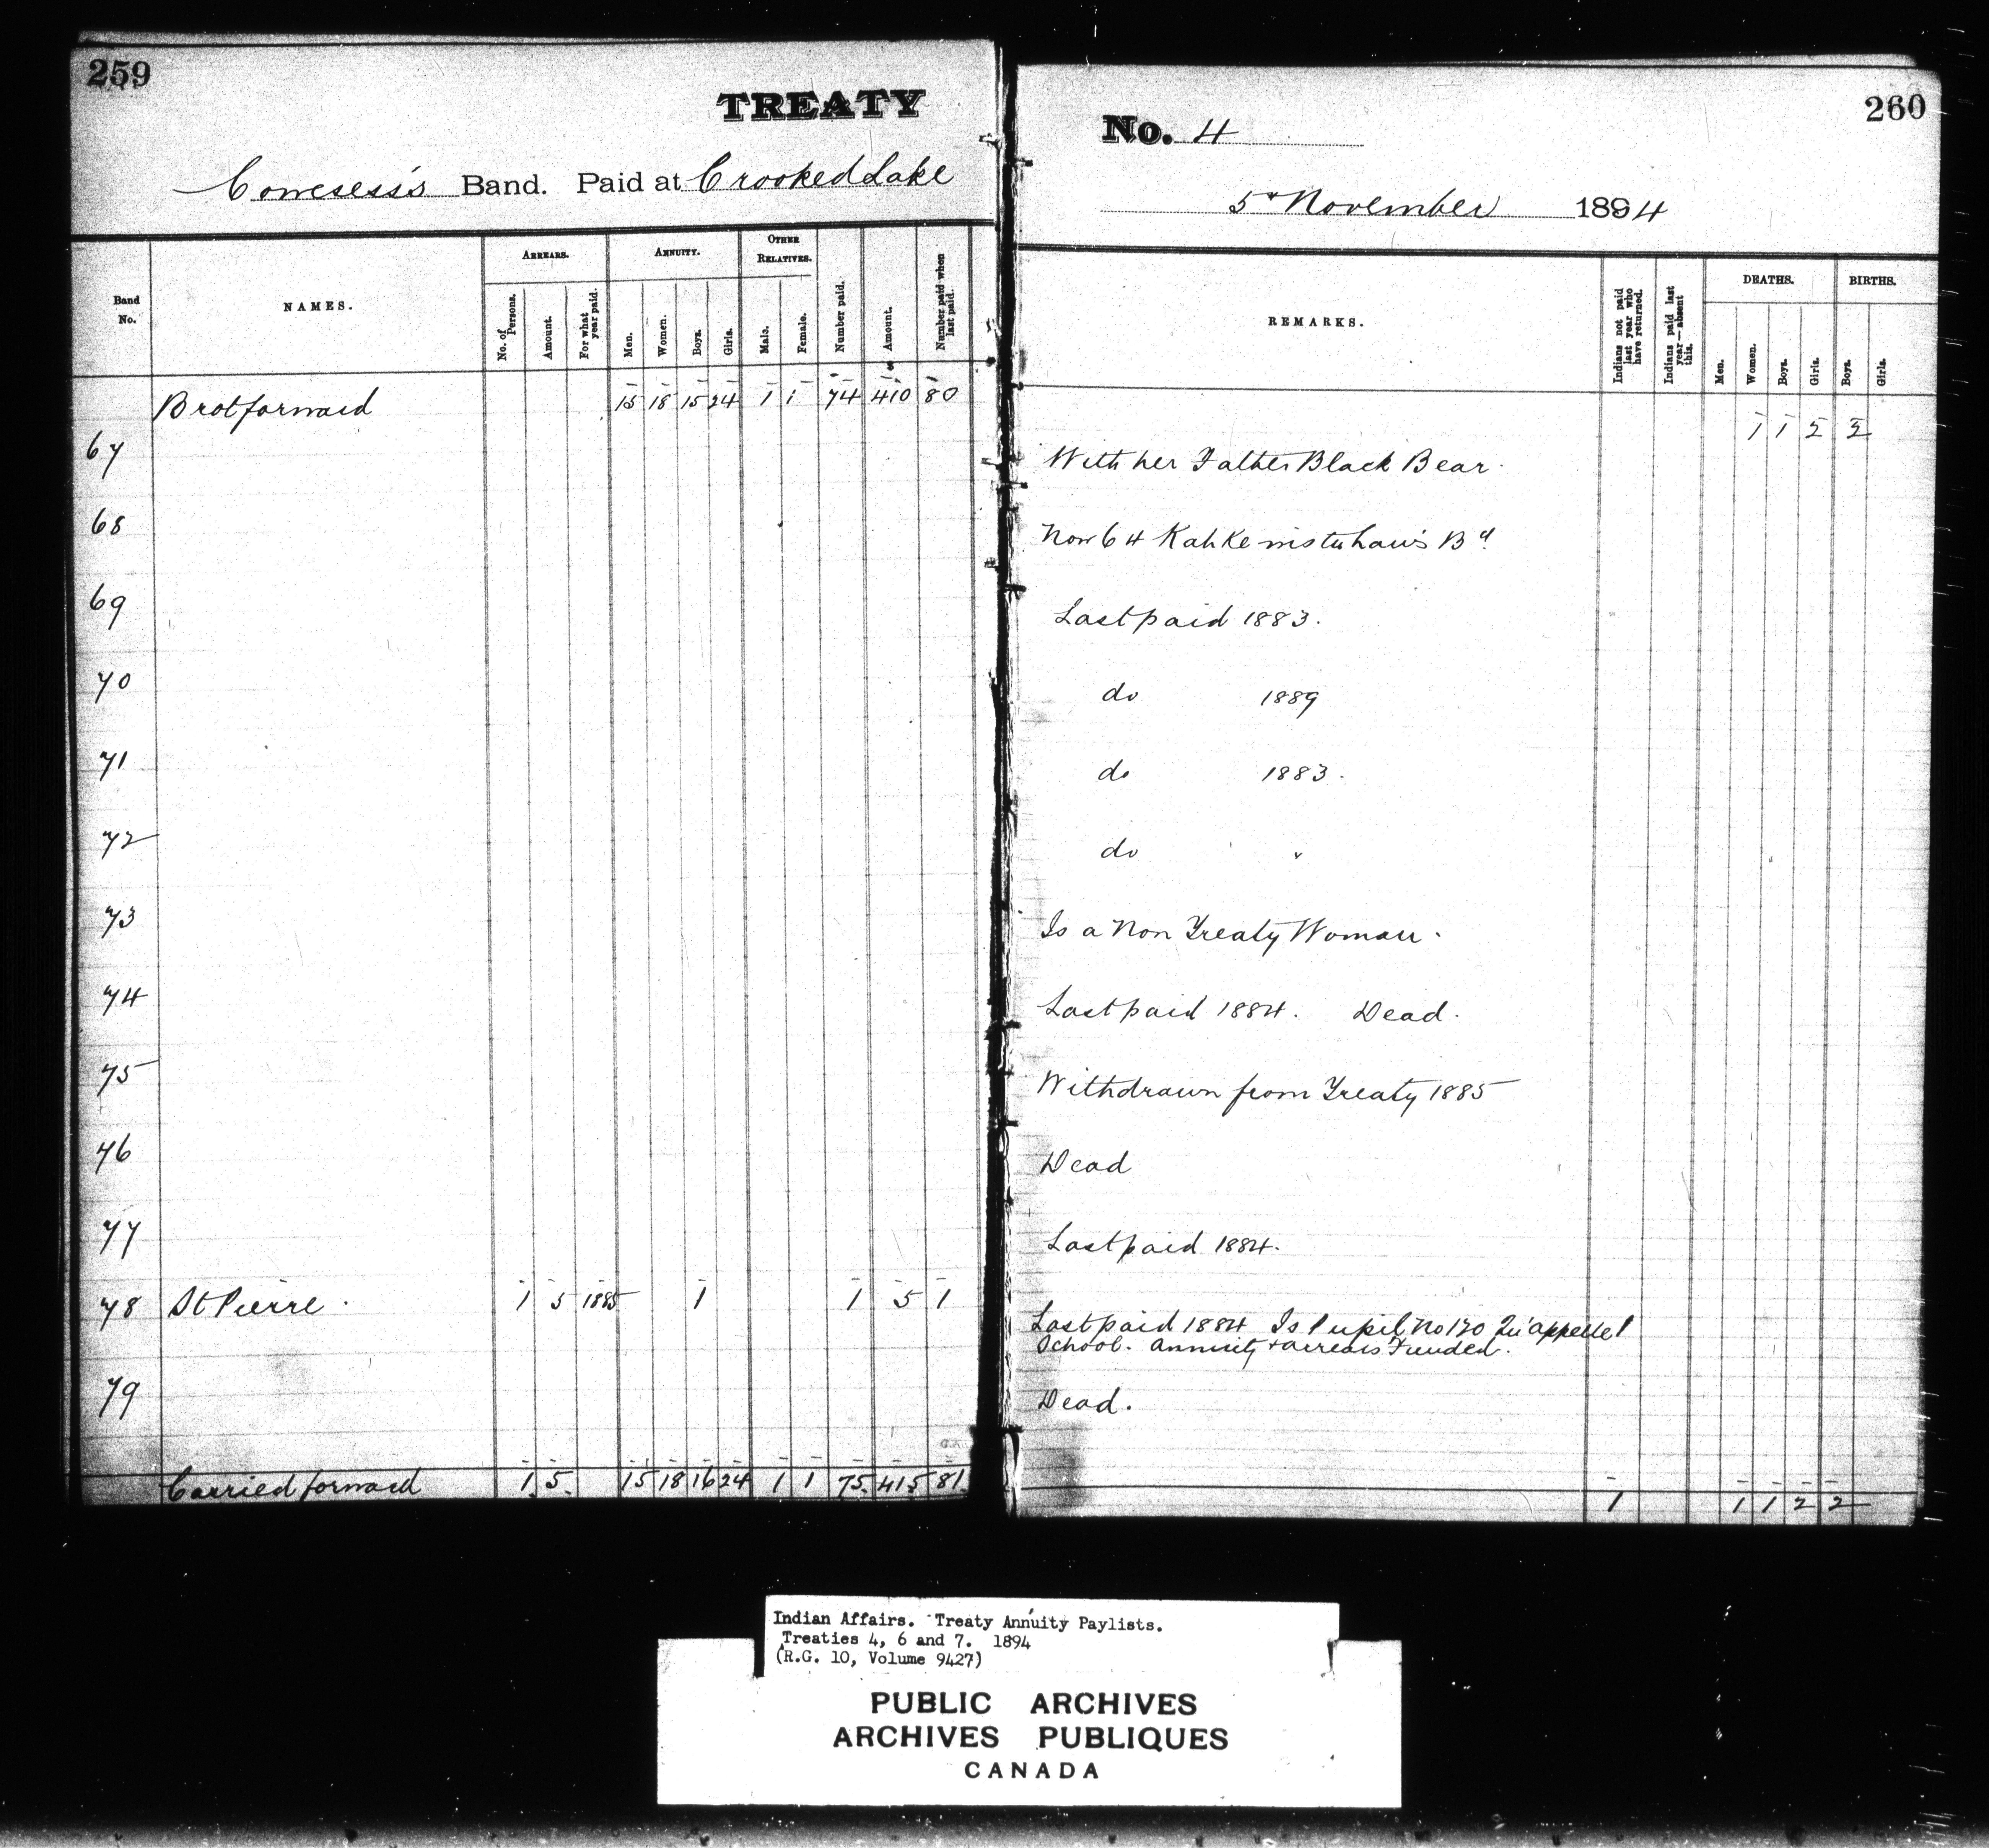 259
TREATY
Cowesess's Band. Paid at Crooked Lake
No. 4
260
5th November 1894
Band No.
NAMES.
ARREARS.
No. of Persons.
Amount.
For what year paid.
ANNUITY.
Men.
Women.
Boys.
Girls.
OTHER RELATIVES.
Male.
Female.
Number paid.
Amount.
Number paid when last paid.
REMARKS.
Indians not paid last year who have returned.
Indians paid last year—absent this.
DEATHS.
Men.
Women.
Boys.
Girls.
BIRTHS.
Boys.
Girls.
Brot forward 15 18 15 24 1 1 74 410 80
1 1 2 2
67 With her Father Black Bear.
68 Now 64 Kahkewistuhaw's Bd.
69 Last paid 1883.
70 do 1889
71 do 1883.
72 do "
73 Is a Non Treaty Woman.
74 Last paid 1884. Dead.
75 Withdrawn from Treaty 1885
76 Dead
77 Last paid 1884.
78 St Pierre. 1 5 1885 1 1 5 1 Last paid 1884 Is Pupil No 120 Qu'appelle 1
School. Annuity & arrears Funded.
79 Dead.
Carried forward 1 5 15 18 16 24 1 1 75 415 81 1 1 1 2 2
Indian Affairs. Treaty Annuity Paylists.
Treaties 4, 6 and 7. 1894
(R.G. 10, Volume 9427)
PUBLIC ARCHIVES
ARCHIVES PUBLIQUES
CANADA